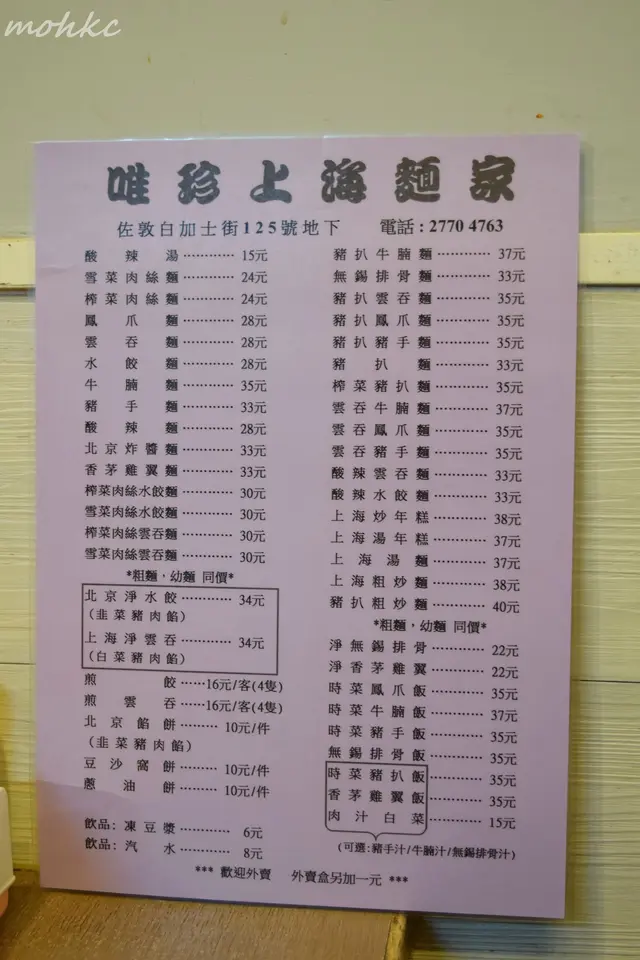 mohkc
唯珍上海麵家
佐敦白加士街125號地下 電話:2770 4763
酸辣湯…………15元
雪菜肉絲麵…………24元
榨菜肉絲麵…………24元
鳳爪麵…………28元
雲吞麵…………28元
水餃麵…………28元
牛腩麵…………35元
豬手麵…………33元
酸辣麵…………28元
北京炸醬麵…………33元
香茅雞翼麵…………33元
榨菜肉絲水餃麵…………30元
雪菜肉絲水餃麵…………30元
榨菜肉絲雲吞麵…………30元
雪菜肉絲雲吞麵…………30元
*粗麵,幼麵 同價*
北京淨水餃…………34元
(韭菜豬肉餡)
上海淨雲吞…………34元
(白菜豬肉餡)
煎餃……16元/客(4隻)
煎雲吞……16元/客(4隻)
北京餡餅…………10元/件
(韭菜豬肉餡)
豆沙窩餅…………10元/件
蔥油餅…………10元/件
飲品:凍豆漿…………6元
飲品:汽水…………8元
豬扒牛腩麵…………37元
無錫排骨麵…………33元
豬扒雲吞麵…………35元
豬扒鳳爪麵…………35元
豬扒豬手麵…………35元
豬扒麵…………33元
榨菜豬扒麵…………35元
雲吞牛腩麵…………37元
雲吞鳳爪麵…………35元
雲吞豬手麵…………35元
酸辣雲吞麵…………33元
酸辣水餃麵…………33元
上海炒年糕…………38元
上海湯年糕…………37元
上海湯麵…………37元
上海粗炒麵…………38元
豬扒粗炒麵…………40元
*粗麵,幼麵 同價*
淨無錫排骨…………22元
淨香茅雞翼…………22元
時菜鳳爪飯…………35元
時菜牛腩飯…………37元
時菜豬手飯…………35元
無錫排骨飯…………35元
時菜豬扒飯…………35元
香茅雞翼飯…………35元
肉汁白菜…………15元
(可選:豬手汁/牛腩汁/無錫排骨汁)
*** 歡迎外賣 外賣盒另加一元 ***